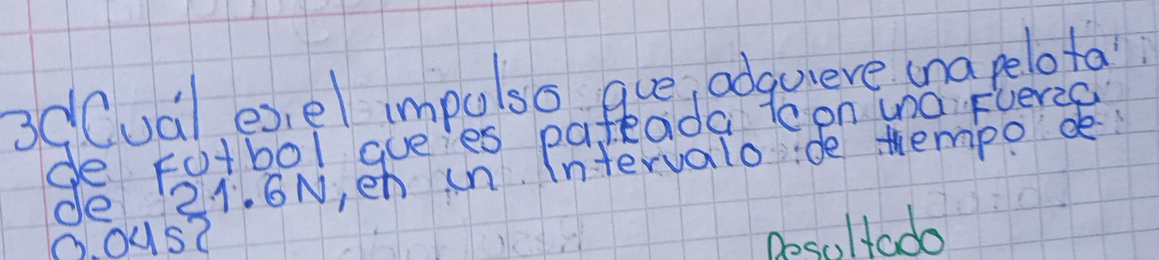 3¿Cuál es el impulso que adquiere una pelota
de Futbol que es pateada con una Fuerza
de 21.6N, en un intervalo de tiempo de
0.04s?
Resultado